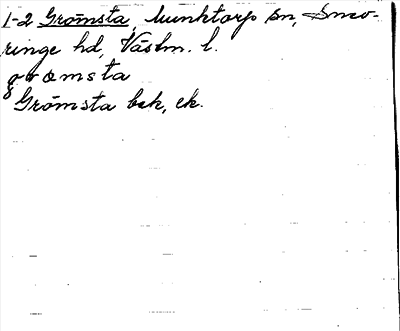 1-2 Grömsta, Munktorp sn, Snev-
ringe hd, Västm. l.
grömsta
Grömsta bek, ek.